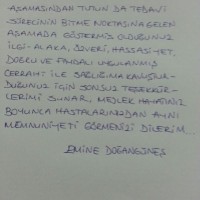 AŞAMASINDAN TUTUN DA TEDAVİ
SÜRECİNİN BİTME NOKTASINA GELEN
AŞAMADA GÖSTERMİŞ OLDUĞUNUZ
İLGİ-ALAKA, ÖZVERİ, HASSASİYET,
DOĞRU VE FAYDALI UYGULANMIŞ
CERRAHİ İLE SAĞLIĞIMA KAVUŞTUR-
DUĞUNUZ İÇİN SONSUZ TEŞEKKÜR-
LERİMİ SUNAR, MESLEK HAYATINIZ
BOYUNCA HASTALARINIZDAN AYNI
MEMNUNİYETİ GÖRMENİZİ DİLERİM.
EMİNE DOĞANGÜNEŞ